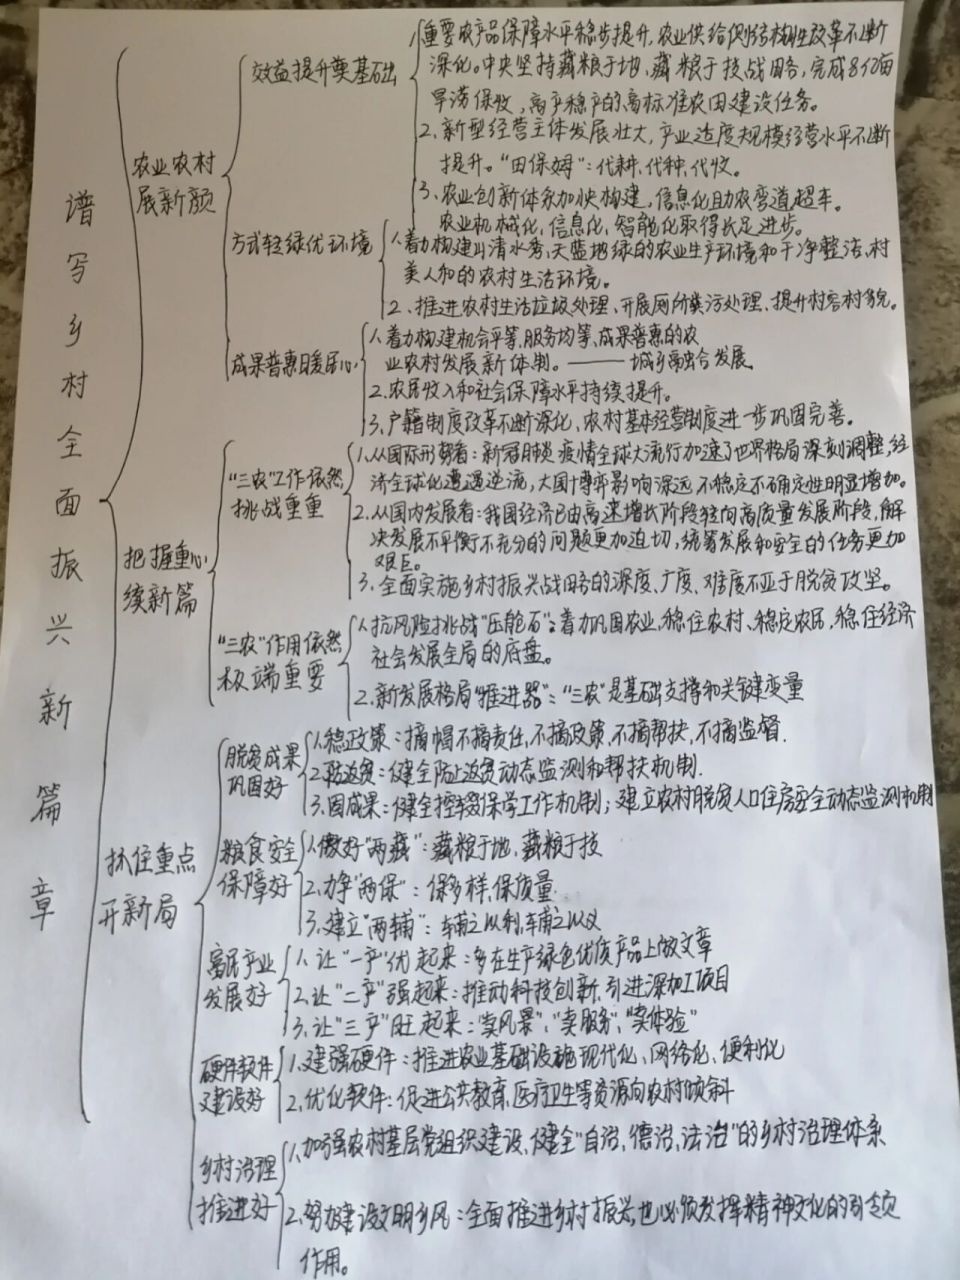 谱写乡村全面振兴新篇章
农业农村
展新颜
效益提升奠基础
1.重要农产品保障水平稳步提升,农业供给侧结构性改革不断
深化。中央坚持藏粮于地、藏粮于技战略,完成8亿亩
旱涝保收,高产稳产的高标准农田建设任务。
2.新型经营主体发展壮大,产业适度规模经营水平不断
提升。“田保姆”:代耕、代种、代收。
3.农业创新体系加快构建,信息化助农弯道超车。
农业机械化,信息化,智能化取得长足进步。
方式轻绿优环境
1.着力构建山清水秀、天蓝地绿的农业生产环境和干净整洁、村
美人和的农村生活环境。
2.推进农村生活垃圾处理、开展厕所粪污处理、提升村容村貌。
成果普惠暖民心
1.着力构建机会平等、服务均等、成果普惠的农
业农村发展新体制。——城乡融合发展.
2.农民收入和社会保障水平持续提升。
3.户籍制度改革不断深化、农村基本经营制度进一步巩固完善。
把握重心
续新篇
“三农”工作依然
挑战重重
1.从国际形势看:新冠肺炎疫情全球大流行加速了世界格局深刻调整,经
济全球化遭遇逆流,大国博弈影响深远,不稳定不确定性明显增加。
2.从国内发展看:我国经济已由高速增长阶段转向高质量发展阶段,解
决发展不平衡不充分的问题更加迫切,统筹发展和安全的任务更加
艰巨。
3.全面实施乡村振兴战略的深度、广度、难度不亚于脱贫攻坚。
“三农”作用依然
极端重要
1.抗风险挑战“压舱石”:着力巩固农业、稳住农村、稳定农民,稳住经济
社会发展全局的底盘。
2.新发展格局“推进器”:“三农”是基础支撑和关键变量
抓住重点
开新局
脱贫成果
巩固好
1.稳政策:摘帽不摘责任,不摘政策,不摘帮扶,不摘监督.
2.防返贫:健全防止返贫动态监测和帮扶机制.
3.固成果:健全控辍保学工作机制;建立农村脱贫人口住房安全动态监测机制
粮食安全
保障好
1.做好“两藏”:藏粮于地、藏粮于技
2.力争“两保”:保多样,保质量.
3.建立“两辅”:辅之以利,辅之以义
富民产业
发展好
1.让“一产”优起来:多在生产绿色优质产品上做文章
2.让“二产”强起来:推动科技创新,引进深加工项目
3.让“三产”旺起来:“卖风景”、“卖服务”、“卖体验”
硬件软件
建设好
1.建强硬件:推进农业基础设施现代化、网络化、便利化
2.优化软件:促进公共教育、医疗卫生等资源向农村倾斜
乡村治理
推进好
1.加强农村基层党组织建设、健全“自治、德治、法治”的乡村治理体系
2.努力建设文明乡风:全面推进乡村振兴,也必须发挥精神文化的引领
作用。